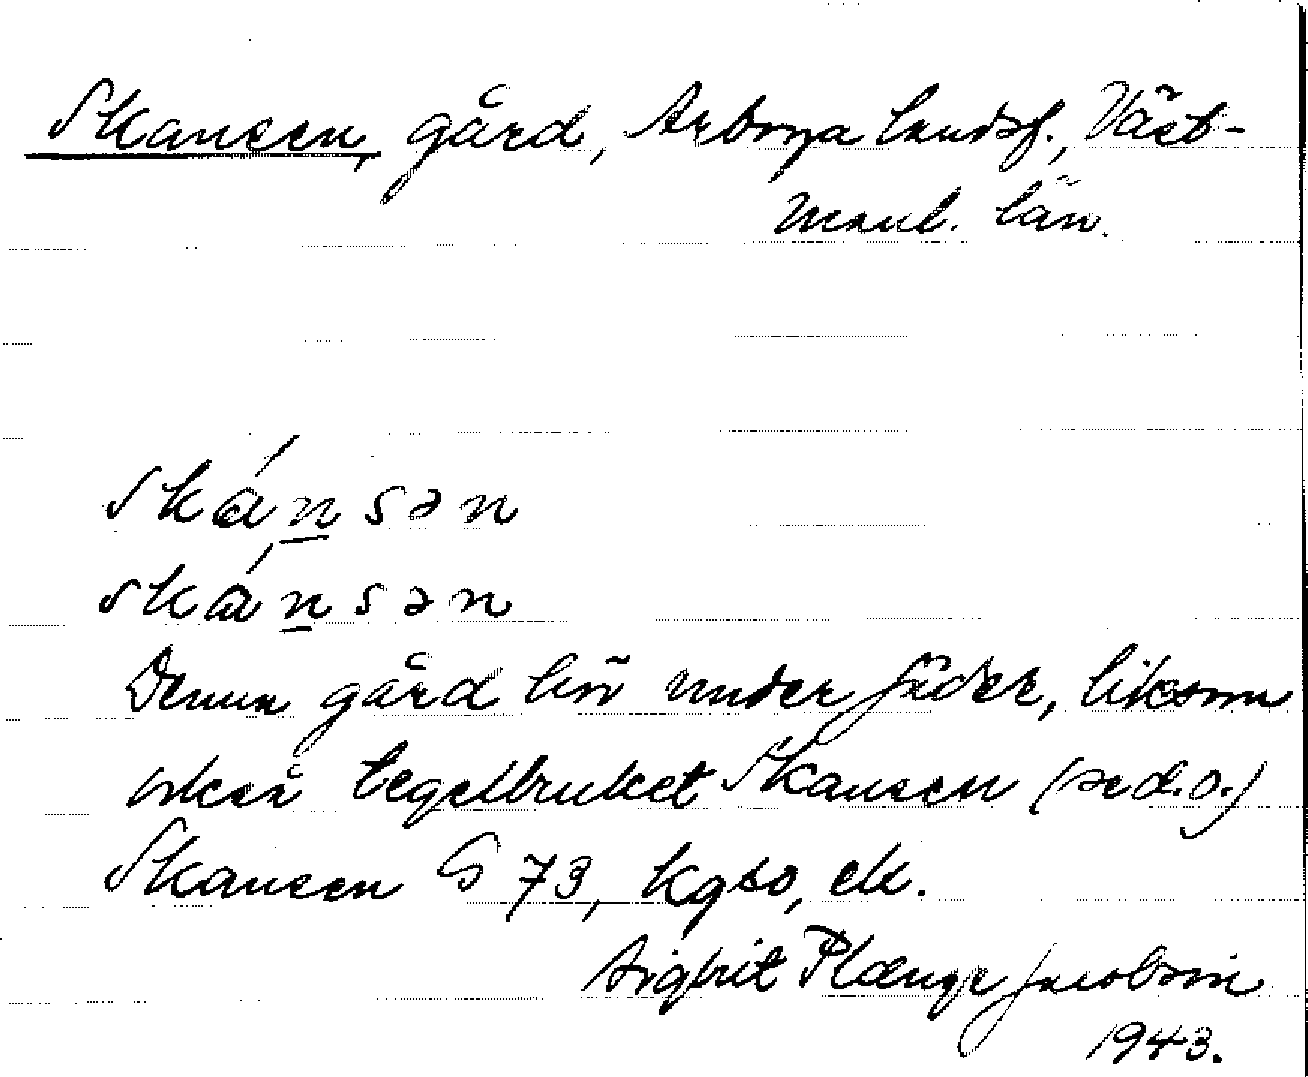 Skansen, gård, Arboga landsf., Väst-
manl. län.
skánsən
skánsən
Denna gård lör under Jäder, liksom
också tegelbruket Skansen (se d.o.)
Skansen G 73, kgso, ek.
Sigbrit Plænge Jacobson
1943.